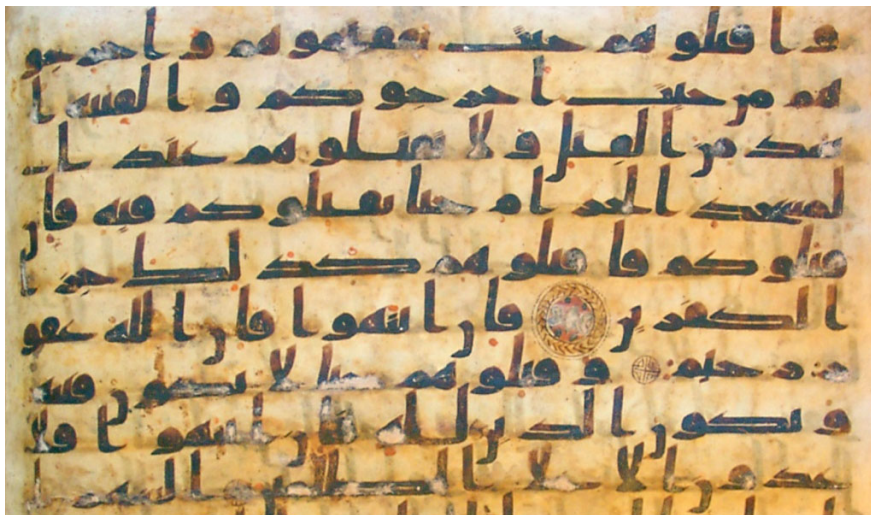 واقتلوهم حيث ثقفتموهم واخرجو
هم من حيث اخرجوكم والفتنة ا
شد من القتل ولا تقتلوهم عند ا
لمسجد الحرام حتى يقتلوكم فيه فان
قتلوكم فاقتلوهم كذلك جزا
الكفرين فان انتهوا فان الله غفو
ر رحيم وقتلوهم حتى لا تكون فتنة
ويكون الدين لله فان انتهوا فلا
عدون الا على الظلمين الشهر ا